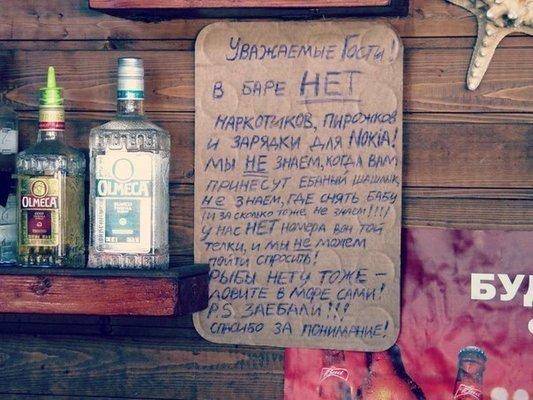 Уважаемые Гости!
В БАРЕ НЕТ
НАРКОТИКОВ, ПИРОЖКОВ
И ЗАРЯДКИ ДЛЯ NOKIA!
МЫ НЕ ЗНАЕМ, КОГДА ВАМ
ПРИНЕСУТ ЕБАНЫЙ ШАШЛЫК,
НЕ ЗНАЕМ, ГДЕ СНЯТЬ БАБУ
(И ЗА СКОЛЬКО ТОЖЕ НЕ ЗНАЕМ!!!)
У НАС НЕТ НОМЕРА ВОН ТОЙ
ТЕЛКИ, И МЫ НЕ МОЖЕМ
ПОЙТИ СПРОСИТЬ!
РЫБЫ НЕТУ ТОЖЕ –
ЛОВИТЕ В МОРЕ САМИ!
P.S. ЗАЕБАЛИ!!!
СПАСИБО ЗА ПОНИМАНИЕ!
OLMECA
OLMECA
БУД
Bud
Bud